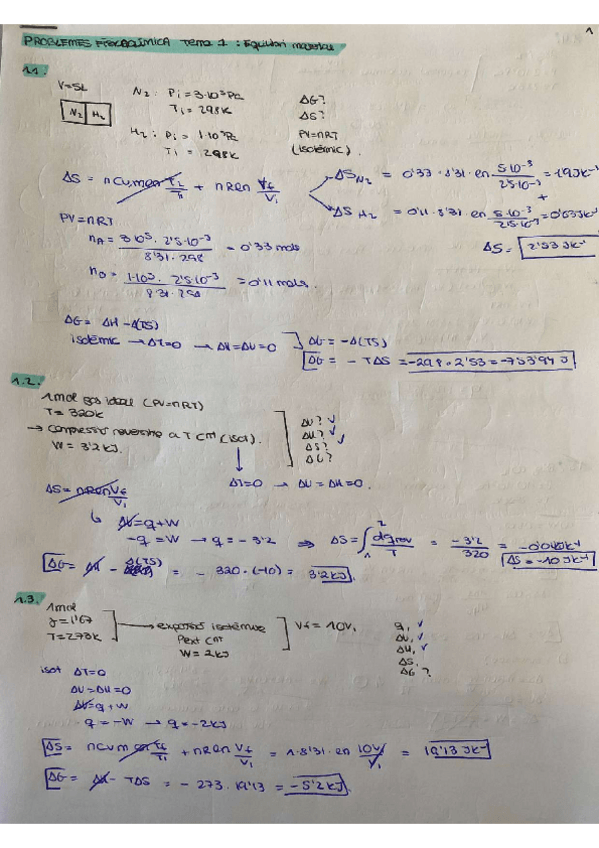 1
PROBLEMES FISICOQUÍMICA Tema 1 : Equilibri material
1.1.
V=5L
N2 : Pi = 3·10³ Pa
Ti = 298K
ΔG?
ΔS?
N2 | H2
H2 : Pi = 1·10³ Pa
Ti = 298K
PV=nRT
(isotèrmic).
ΔS = nCv,m ln T2/T1 + nR ln Vf/Vi
ΔS N2 = 0'33 · 8'31 · ln 5·10⁻³/2'5·10⁻³ = 1'9 JK⁻¹
+
ΔS H2 = 0'11 · 8'31 · ln 5·10⁻³/2'5·10⁻³ = 0'63 JK⁻¹
ΔS = 2'53 JK⁻¹
PV=nRT
nA = 3·10³ · 2'5·10⁻³/8'31 · 298 = 0'33 mols
nB = 1·10³ · 2'5·10⁻³/8'31 · 298 = 0'11 mols.
ΔG = ΔH - Δ(TS)
isotèrmic → ΔT=0 → ΔH=ΔU=0
ΔG = -Δ(TS)
ΔG = - TΔS = -298 · 2'53 = -753'94 J
1.2.
1mol gas ideal (PV=nRT)
T= 320K
→ compressió reversible a T cnt (isot).
W = 3'2 kJ.
ΔU? ✓
ΔH? ✓
ΔS? ✓
ΔG?
ΔT=0 → ΔU = ΔH = 0.
ΔS = nR ln Vf/Vi
ΔU = q + W
-q = W → q = - 3'2 ⇒ ΔS = ∫₁² dqrev/T = -3'2/320 = -0'01 kJK⁻¹
ΔS = -10 JK⁻¹
ΔG = ΔH - Δ(TS) = - 320 · (-10) = 3'2 kJ.
1.3.
1mol
γ = 1'67
T = 273K
→ expansió isotèrmica
Pext cnt
W = 2kJ
Vf = 10Vi
q, ✓
ΔU, ✓
ΔH, ✓
ΔS,
ΔG ?
isot ΔT=0
ΔU = ΔH = 0
ΔU = q + W
q = -W → q = -2kJ
ΔS = nCv,m ln Tf/Ti + nR ln Vf/Vi = 1 · 8'31 · ln 10Vi/Vi = 19'13 JK⁻¹
ΔG = ΔH - TΔS = - 273 · 19'13 = -5'2 kJ.